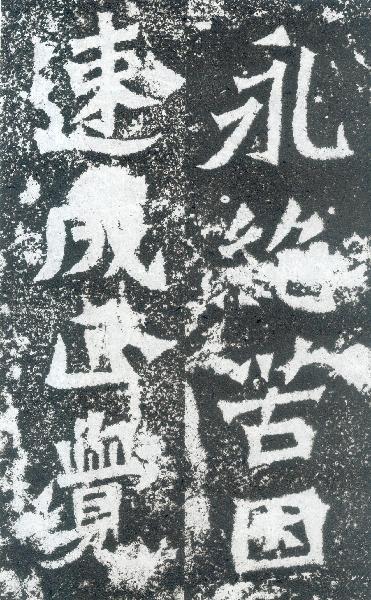 永絶苦因
速成正覺